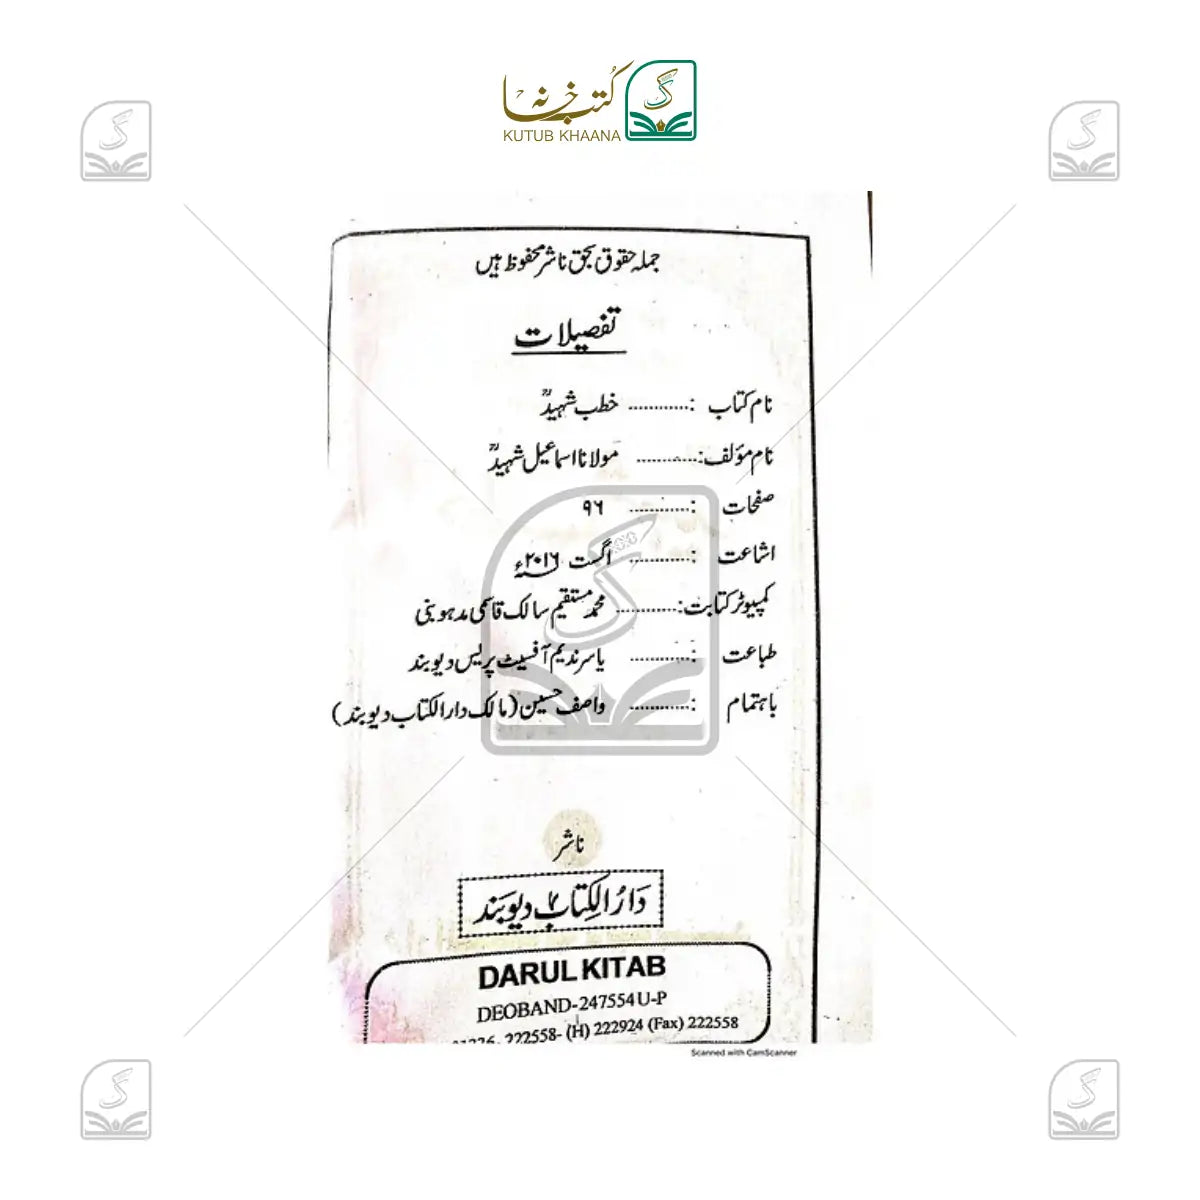 کتب خانہ
KUTUB KHAANA
جملہ حقوق بحق ناشر محفوظ ہیں
تفصیلات
نام کتاب : ............ خطب شہیدؒ
نام مؤلف: ............ مولانا اسماعیل شہیدؒ
صفحات : ............ ۹۶
اشاعت : ............ اگست ۲۰۱۶ء
کمپیوٹر کتابت: ............ محمد مستقیم سالک قاسمی مدہوبنی
طباعت : ............ یاسر ندیم آفسیٹ پریس دیوبند
باہتمام : ............ واصف حسین (مالک دارالکتاب دیوبند)
ناشر
دَارُالکِتاب دیوبَند
DARUL KITAB
DEOBAND-247554 U-P
01336- 222558- (H) 222924 (Fax) 222558
Scanned with CamScanner